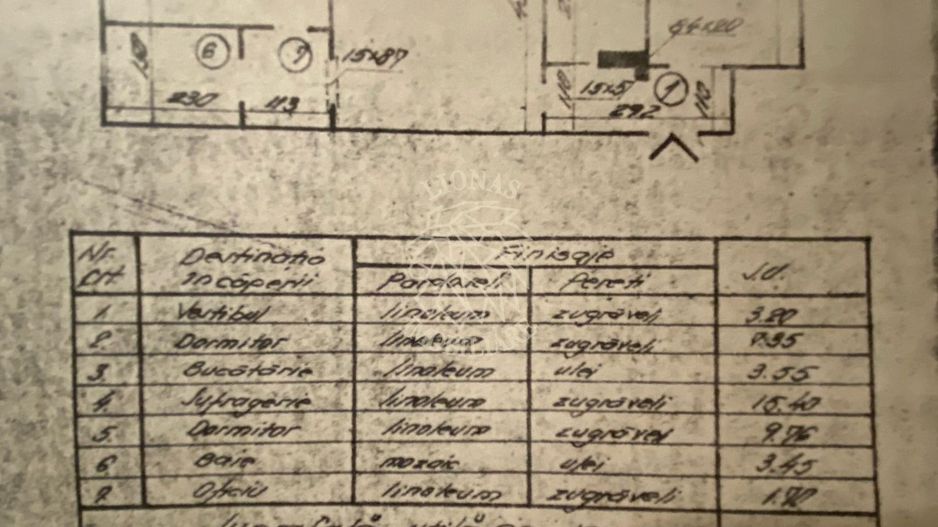 150
6
7
15x87
230
113
64x20
110
15x5
1
110
292
LIONAS
Nr. Crt. Destinația încăperii Finisaje S.U.
Pardoseli Pereti
1. Vestibul linoleum zugrăveli 3.20
2. Dormitor linoleum zugrăveli 7.35
3. Bucătărie linoleum ulei 3.55
4. Sufragerie linoleum zugrăveli 16.40
5. Dormitor linoleum zugrăvel 9.76
6 Baie mozaic ulei 3.45
7. Oficiu linoleum zugrăveli 1.70